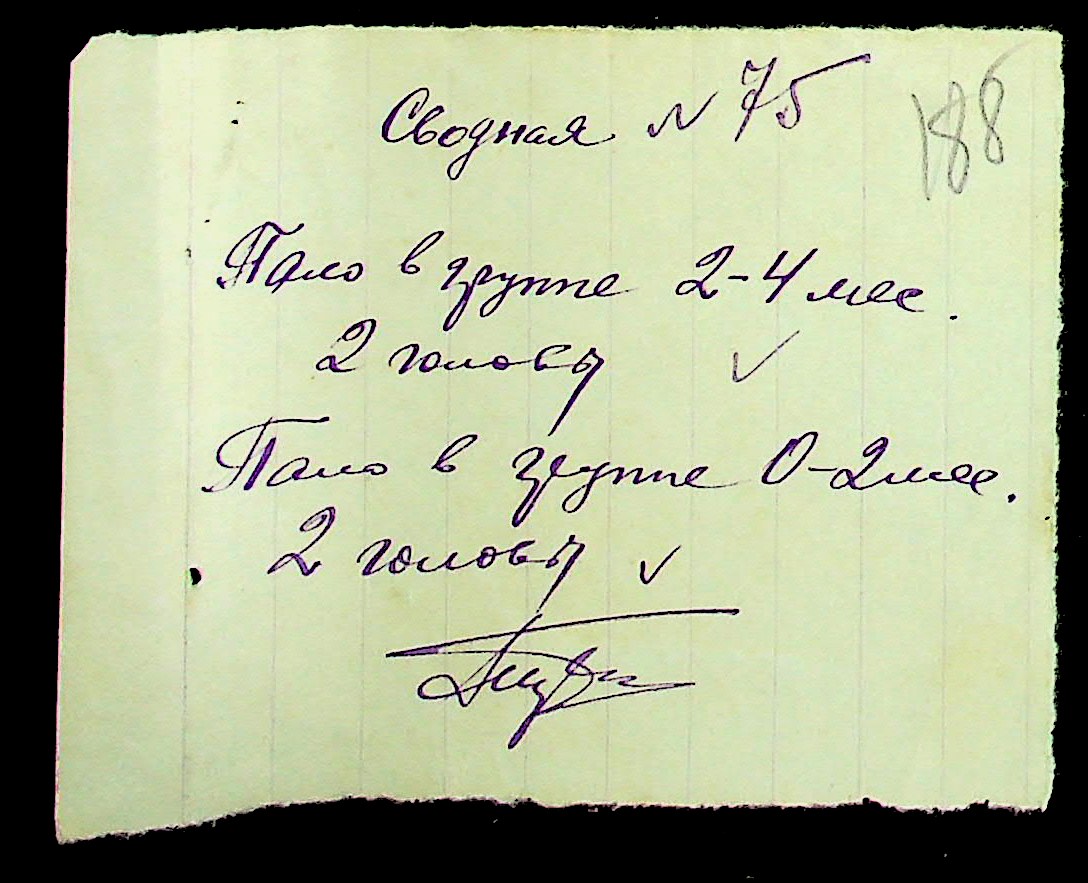 188
Сводная N 75
Пало в группе 2-4 мес.
2 головы
Пало в группе 0-2 мес.
2 головы